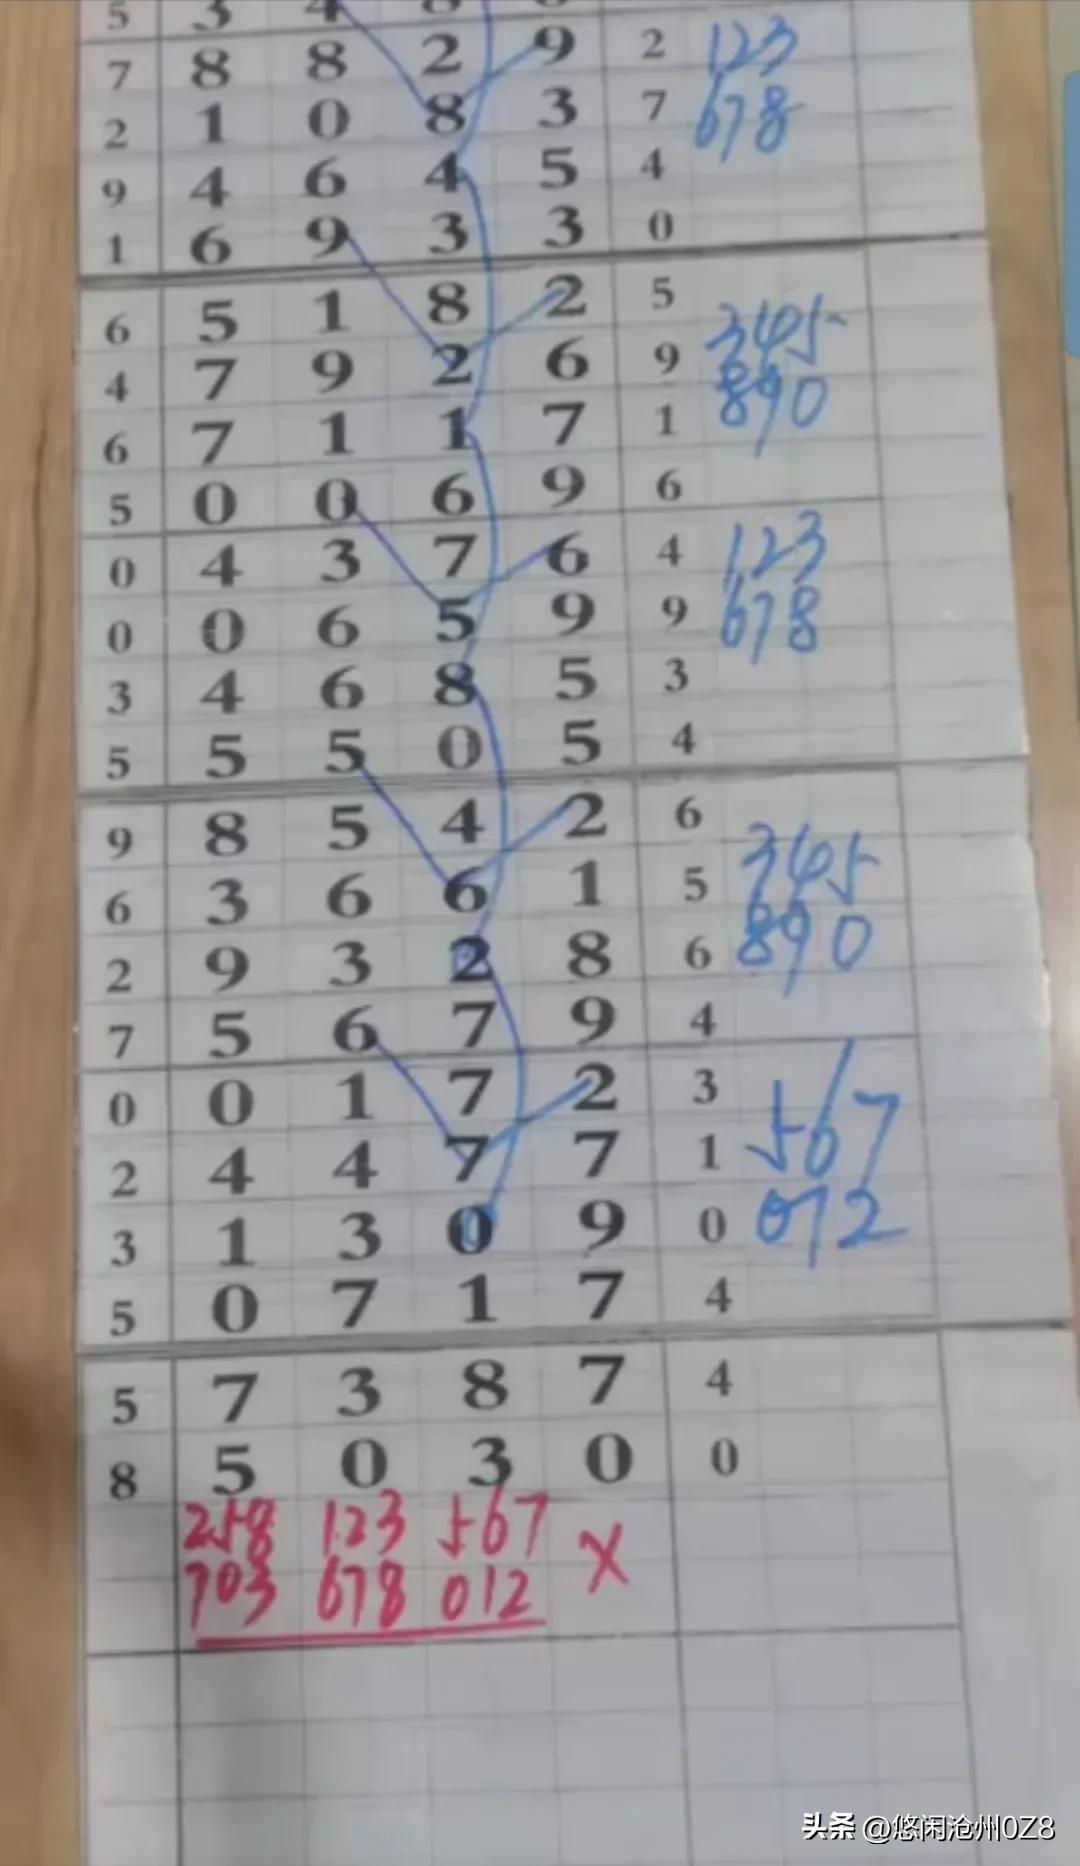 5 3 4
7 8 8 2 9 2 123
2 1 0 8 3 7 678
9 4 6 4 5 4
1 6 9 3 3 0
6 5 1 8 2 5 345
4 7 9 2 6 9 890
6 7 1 1 7 1
5 0 0 6 9 6
0 4 3 7 6 4 123
0 0 6 5 9 9 678
3 4 6 8 5 3
5 5 5 0 5 4
9 8 5 4 2 6 345
6 3 6 6 1 5 890
2 9 3 2 8 6
7 5 6 7 9 4
0 0 1 7 2 3 567
2 4 4 7 7 1 012
3 1 3 0 9 0
5 0 7 1 7 4
5 7 3 8 7 4
8 5 0 3 0 0
258 123 567 X
703 678 012
头条 @悠闲沧州0Z8